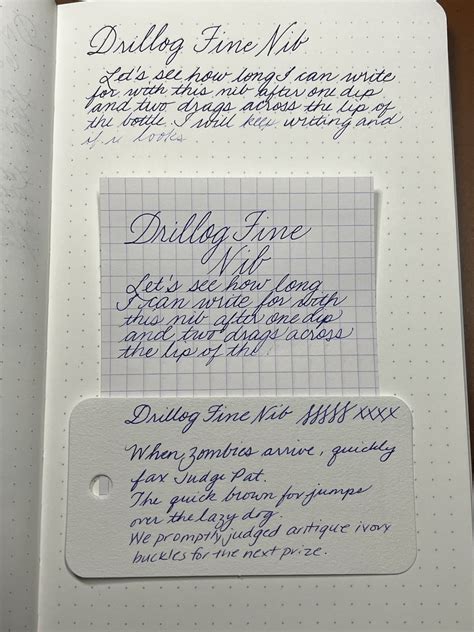 Drillog Fine Nib
Let's see how long I can write
for with this nib after one dip
and two drags across the lip of
the bottle. I will keep writing and
if it looks
Drillog Fine
Nib
Let's see how long
I can write for with
this nib after one dip
and two drags across
the lip of the
Drillog Fine Nib SSSSS XXXX
When zombies arrive, quickly
fax Judge Pat.
The quick brown fox jumps
over the lazy dog.
We promptly judged antique ivory
buckles for the next prize.